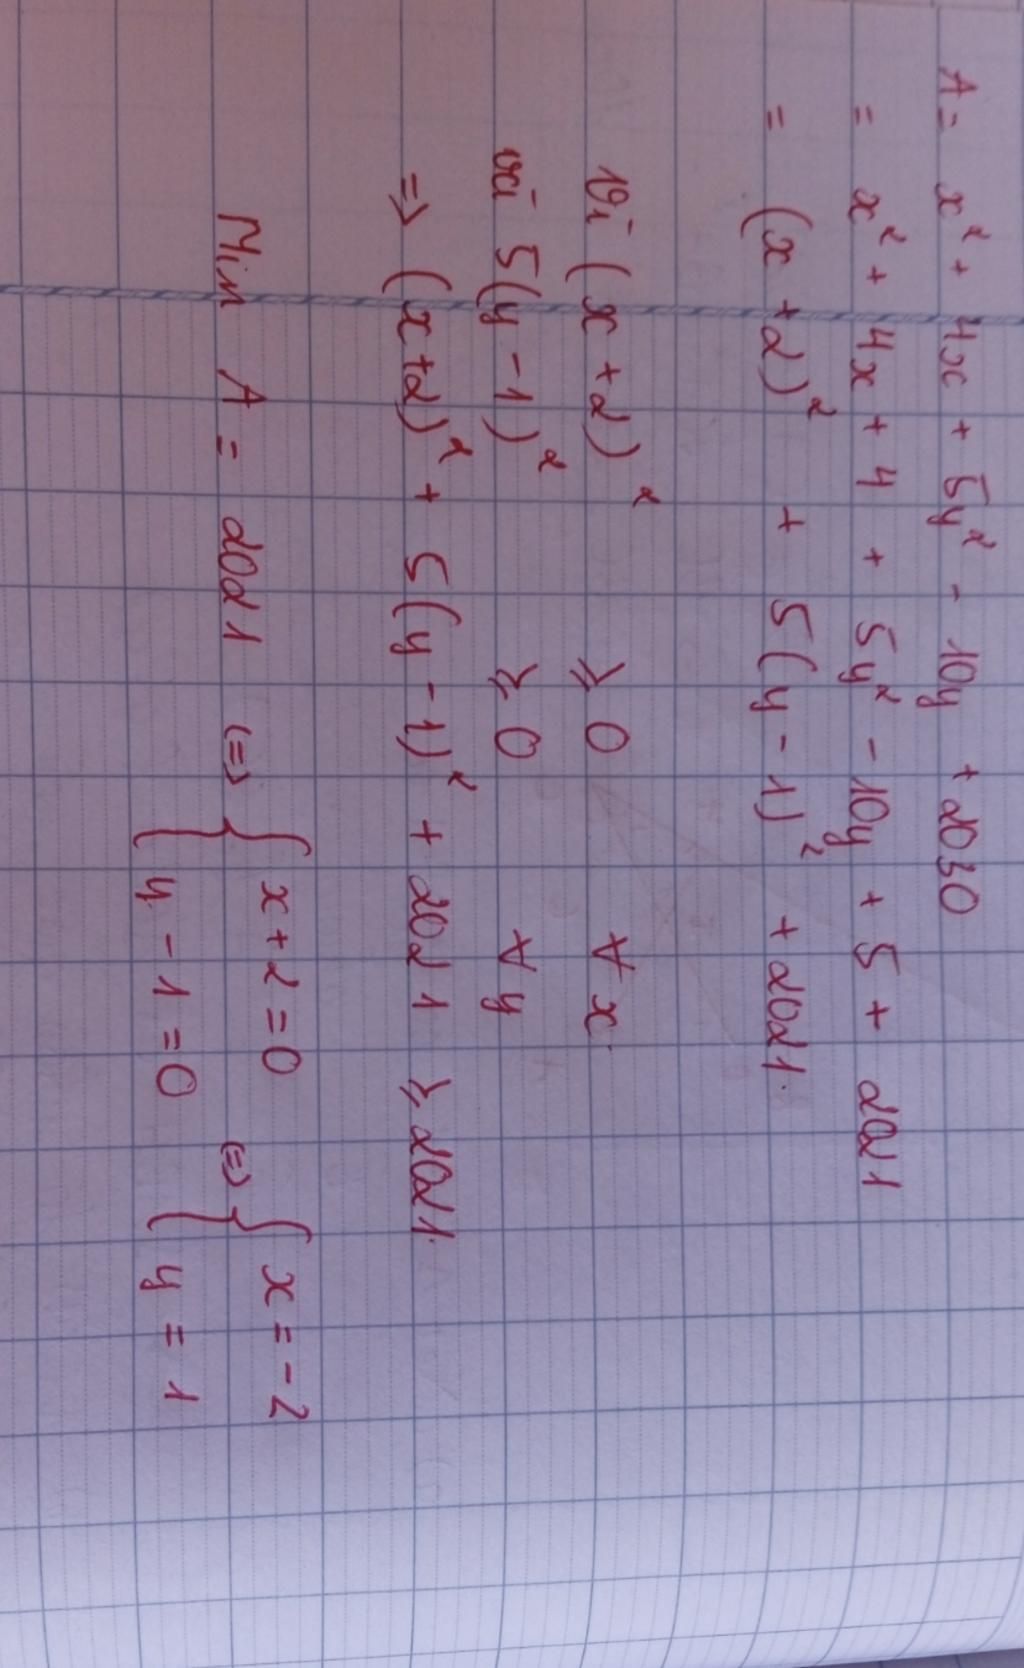 A = x² + 4x + 5y² - 10y + 2030
= x² + 4x + 4 + 5y² - 10y + 5 + 2021
= (x + 2)² + 5(y - 1)² + 2021.
Vì (x + 2)² ≥ 0 ∀ x
và 5(y - 1)² ≥ 0 ∀ y
=> (x + 2)² + 5(y - 1)² + 2021 ≥ 2021.
Min A = 2021 (=) { x + 2 = 0 (=) { x = -2
y - 1 = 0 y = 1